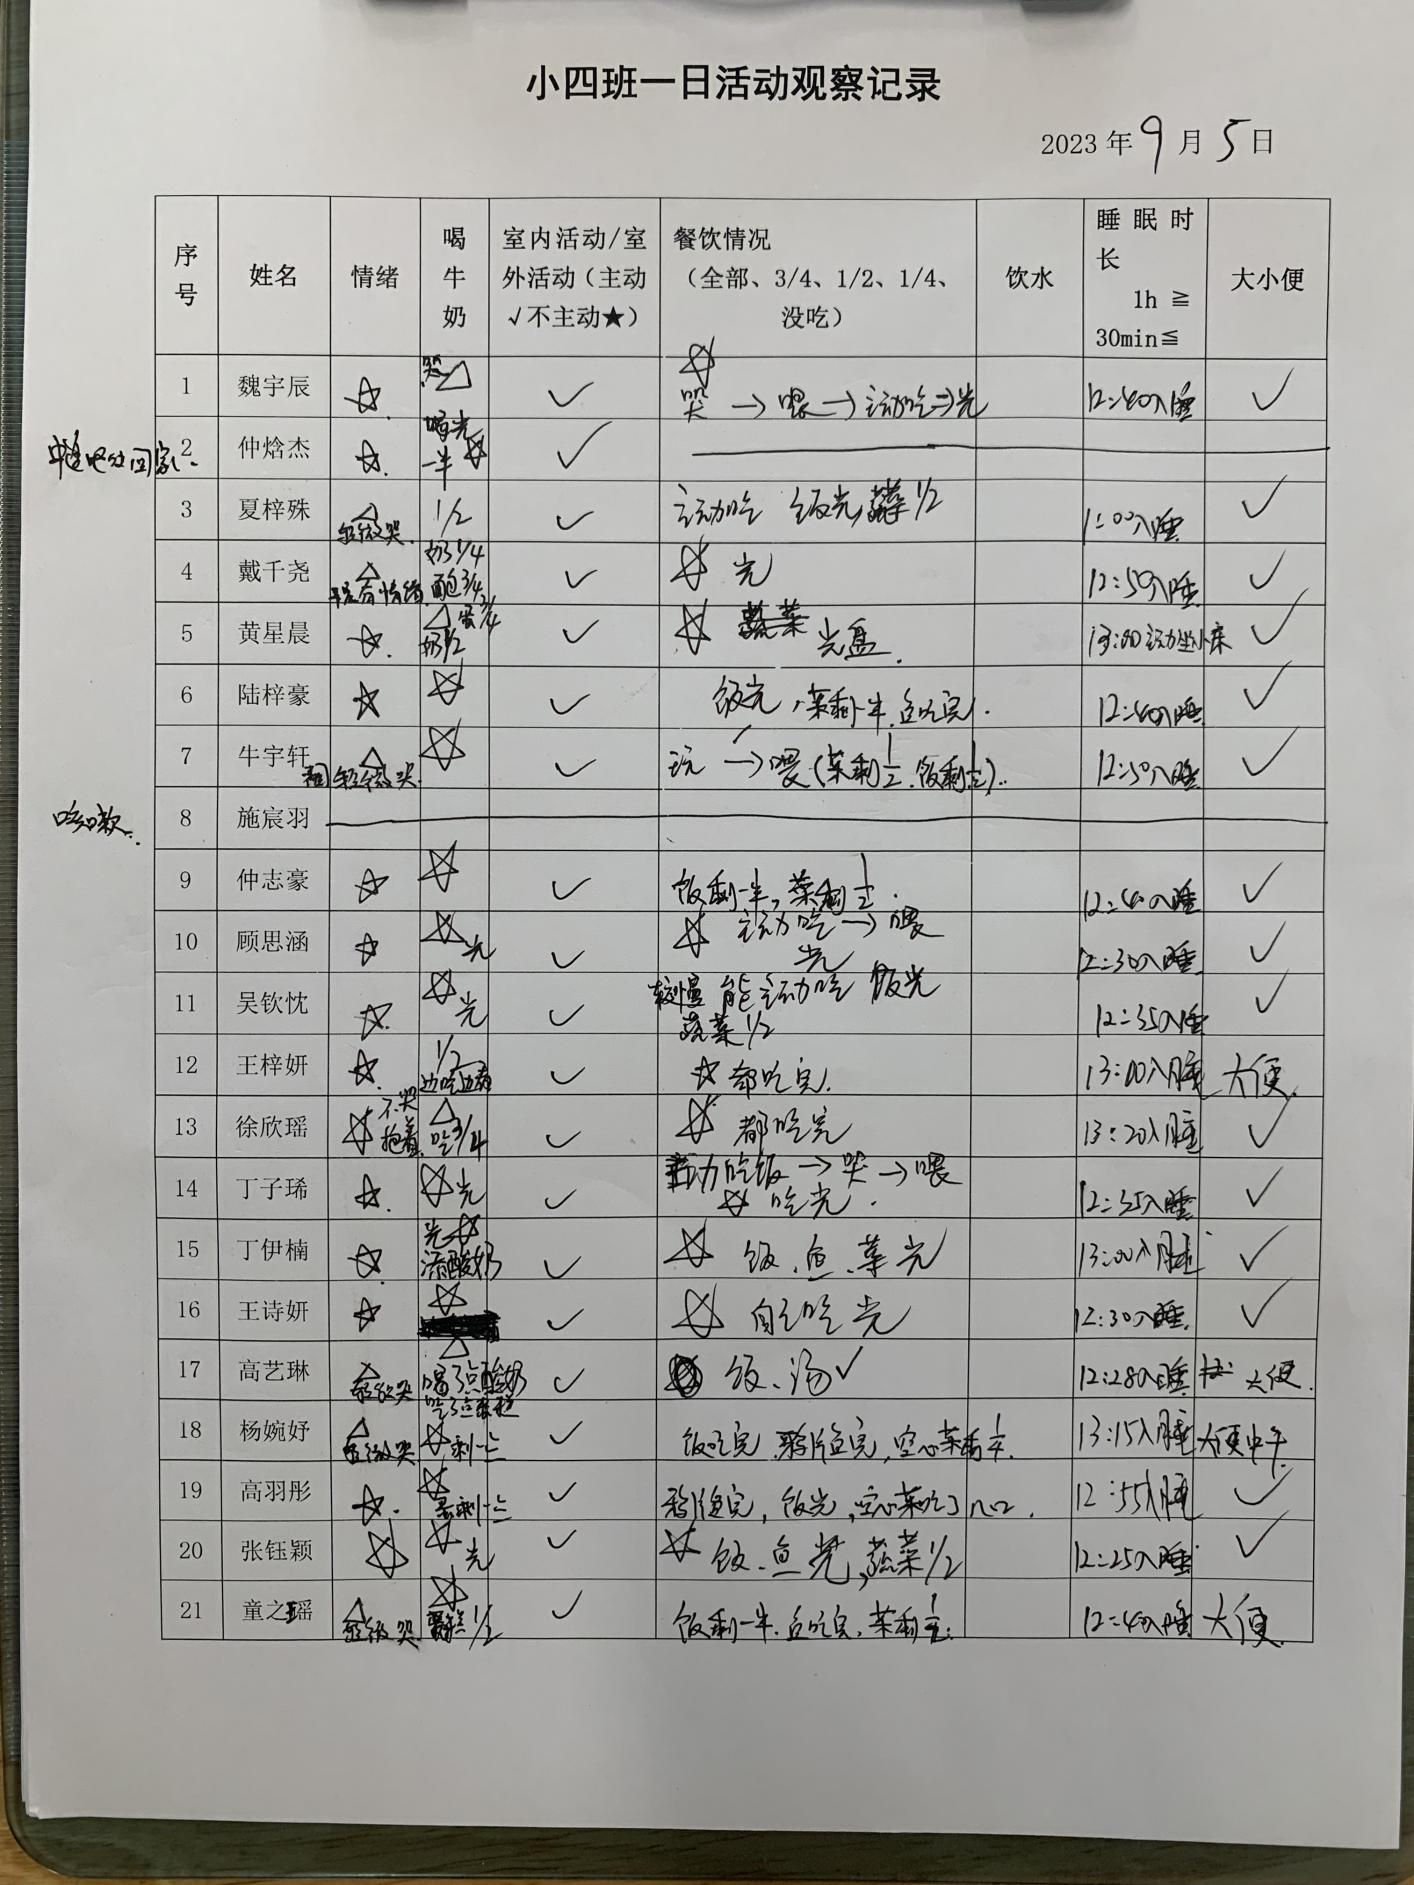 小四班一日活动观察记录
2023 年 9 月 5 日
序号 姓名 情绪 喝牛奶 室内活动/室外活动（主动√不主动★） 餐饮情况（全部、3/4、1/2、1/4、没吃） 饮水 睡眠时长 1h ≧ 30min≦ 大小便
1 魏宇辰 ☆ 哭 △ ✓ ☆ 哭→喂→主动吃→光 12:40入睡 ✓
2 仲焓杰 ☆ 喝光 一半 ☆ ✓
3 夏梓殊 △ 轻微哭 1/2 ✓ 主动吃 饭光, 蔬菜1/2 1:00入睡 ✓
4 戴千尧 △ 有情绪 奶1/4 面包3/4 ✓ ☆ 光 12:50入睡 ✓
5 黄星晨 ☆ △ 蛋3/4 奶1/2 ✓ ☆ 光盘. 13:00主动坐小床 ✓
6 陆梓豪 ☆ ☆ ✓ 饭光,菜剩一半.鱼吃完. 12:40入睡 ✓
7 牛宇轩 △ 轻微哭. ☆ ✓ 玩→喂(菜剩1/2.饭剩1/2).. 12:50入睡 ✓
咳嗽.. 8 施宸羽
9 仲志豪 ☆ ☆ ✓ 饭剩一半,菜剩1/2. 12:40入睡 ✓
10 顾思涵 ☆ ☆光 ✓ ☆ 主动吃→喂 光 12:30入睡 ✓
11 吴钦忱 ☆ ☆光 ✓ 较慢 能主动吃 饭光 蔬菜1/2 12:35入睡 ✓
12 王梓妍 ☆ 1/2 边吃边看 ✓ ☆都吃完. 13:00入睡 大便.
13 徐欣瑶 ☆ 不哭 抱着 △ 吃3/4 ✓ ☆ 都吃完 13:20入睡 ✓
14 丁子琋 ☆ ☆光 ✓ 主动吃饭→哭→喂 ☆吃光. 12:35入睡 ✓
15 丁伊楠 ☆ 光☆ 添酸奶 ✓ ☆ 饭.鱼.菜光 13:00入睡 ✓
16 王诗妍 ☆ ☆ ✓ ☆ 自己吃光 12:30入睡. ✓
17 高艺琳 △ 轻微哭 △ 喝了点酸奶 吃了点蛋糕 ✓ 饭、汤✓ 12:28入睡 大便.
18 杨婉妤 △ 轻微哭 ☆剩一点 ✓ 饭吃完 鱼完,空心菜剩 13:15入睡 大便
19 高羽彤 ☆. ☆ 剩一点 ✓ 鱼完,饭光,空心菜吃了几口. 12:55入睡 ✓
20 张钰颖 ☆ ☆光 ✓ ☆ 饭.鱼光,蔬菜1/2 12:25入睡 ✓
21 童之瑶 △ 轻微哭 ☆ 1/2 ✓ 饭剩一半.鱼吃完.菜剩1/2. 12:40入睡 大便.